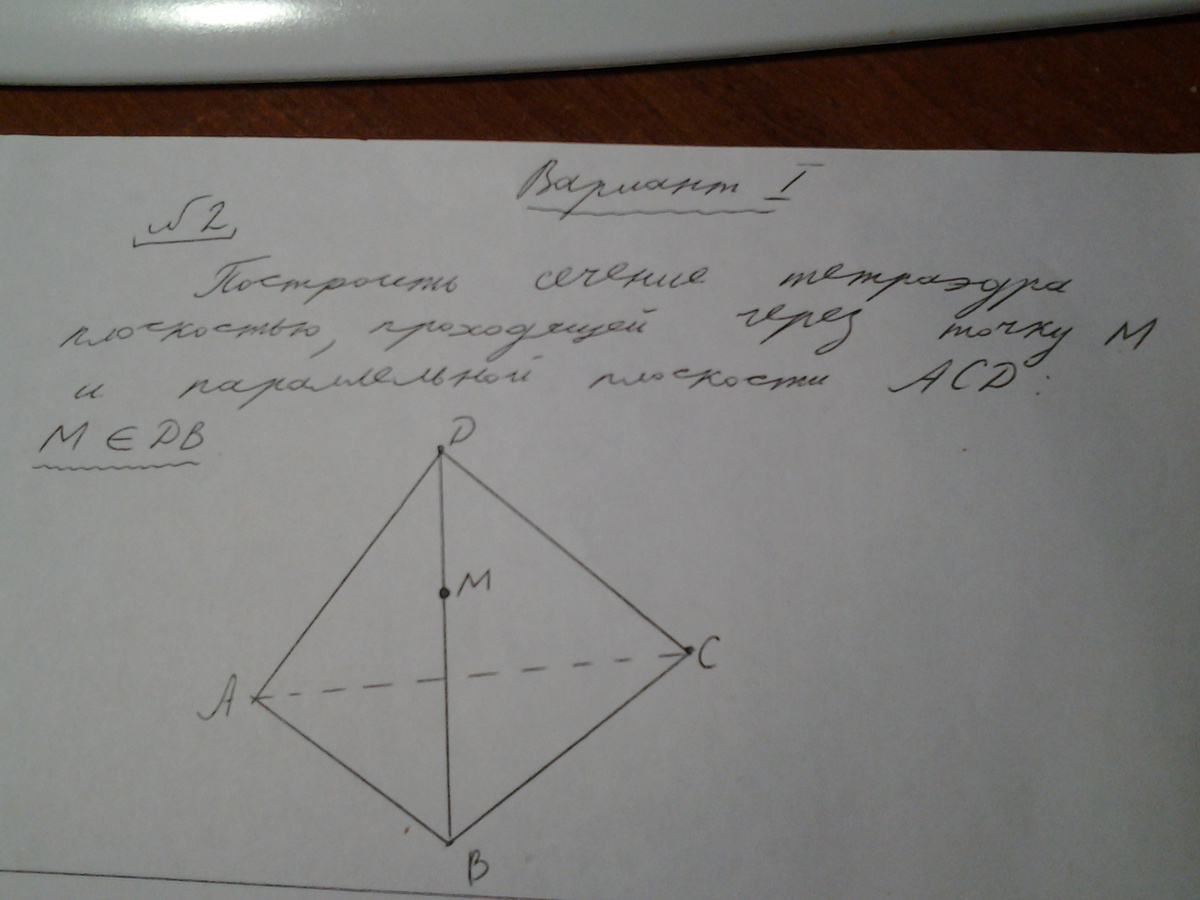 Вариант I
№2
Построить сечение тетраэдра
плоскостью, проходящей через точку M
и параллельной плоскости ACD.
M ∈ DB
D
M
C
A
B